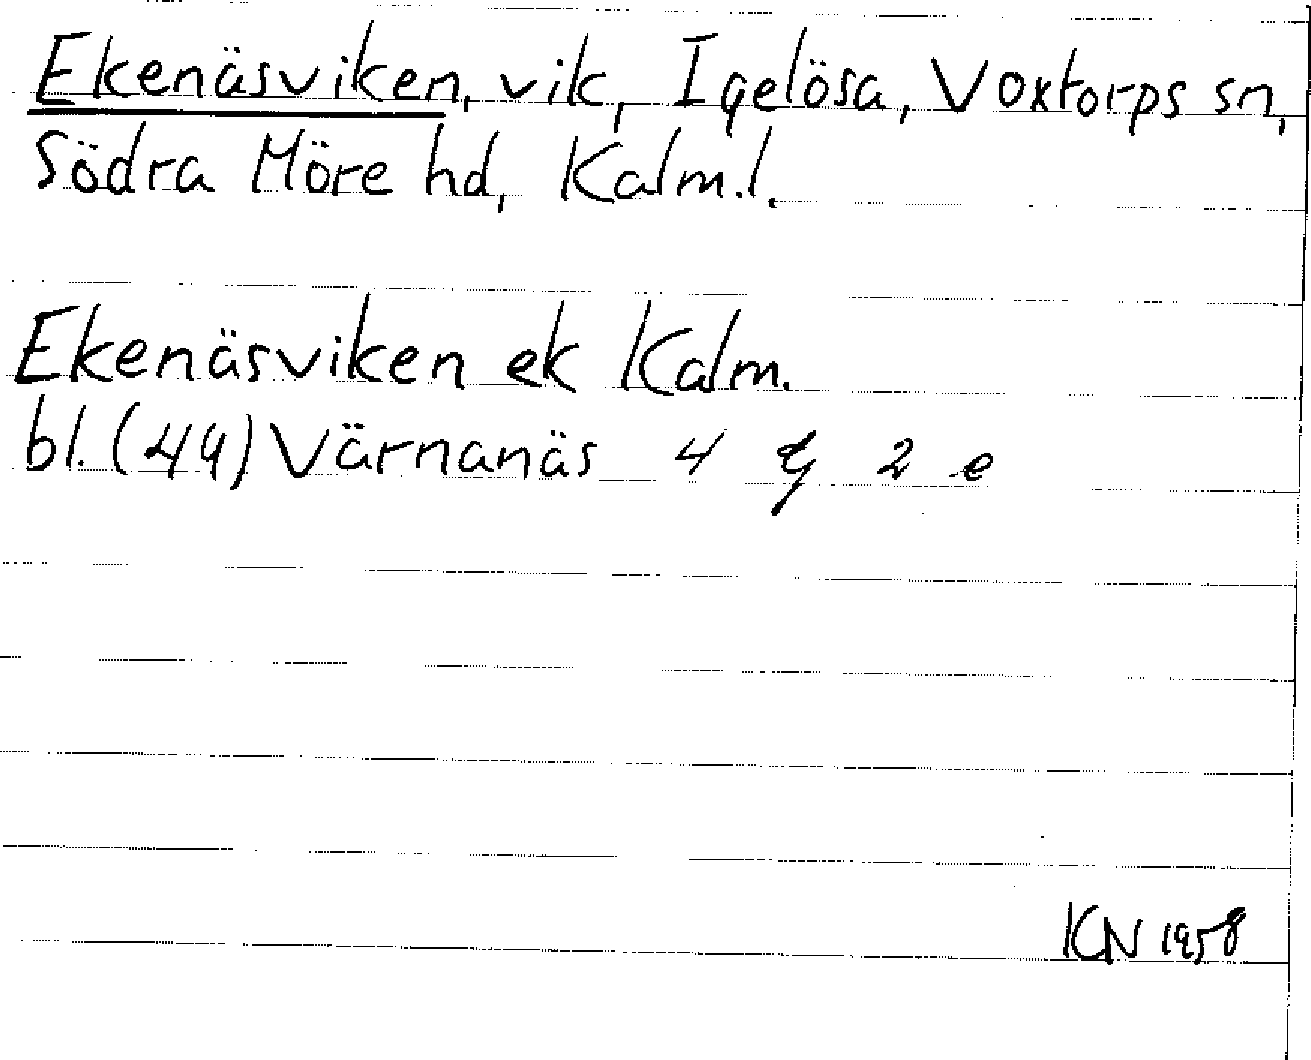 Ekenäsviken, vik, Igelösa, Voxtorps sn,
Södra Möre hd, Kalm.l.
Ekenäsviken ek Kalm.
bl. (49) Värnanäs 4 G 2 e
KN 1958